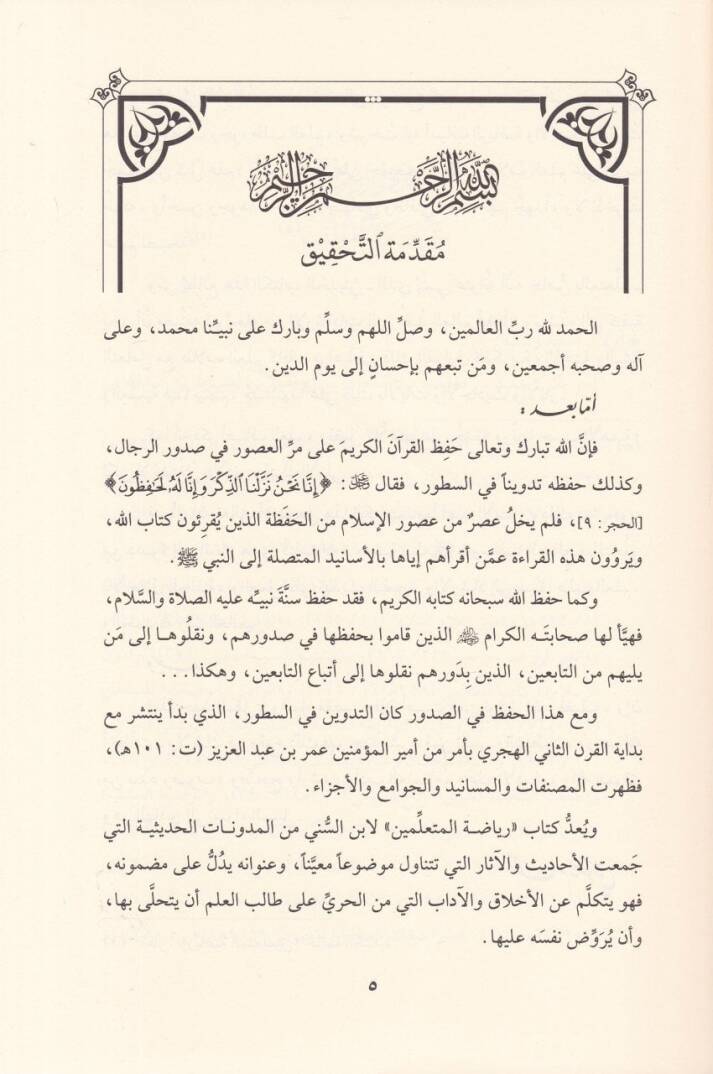 بسم الله الرحمن الرحيم
مُقَدِّمَة التَّحْقِيْق
الحمد لله ربِّ العالمين، وصلِّ اللهم وسلِّم وبارك على نبيِّنا محمد، وعلى
آله وصحبه أجمعين، ومَن تبعهم بإحسانٍ إلى يوم الدين.
أمّا بعد:
فإنَّ الله تبارك وتعالى حَفِظ القرآنَ الكريمَ على مرِّ العصور في صدور الرجال،
وكذلك حفظه تدويناً في السطور، فقال ﷻ: ﴿إِنَّا نَحْنُ نَزَّلْنَا ٱلذِّكْرَ وَإِنَّا لَهُۥ لَحَٰفِظُونَ﴾
[الحجر: ٩]، فلم يخلُ عصرٌ من عصور الإسلام من الحَفَظة الذين يُقرِئون كتاب الله،
ويَروُون هذه القراءة عمَّن أقرأهم إياها بالأسانيد المتصلة إلى النبي ﷺ.
وكما حفظ الله سبحانه كتابه الكريم، فقد حفظ سنَّةَ نبيِّه عليه الصلاة والسَّلام،
فهيَّأ لها صحابتَـه الكرام ﷺ الذين قاموا بحفظها في صدورهم، ونقلُوهـا إلى مَن
يليهم من التابعين، الذين بِدَورهم نقلوها إلى أتباع التابعين، وهكذا...
ومع هذا الحفظ في الصدور كان التدوين في السطور، الذي بدأ ينتشر مع
بداية القرن الثاني الهجري بأمر من أمير المؤمنين عمر بن عبد العزيز (ت: ١٠١هـ)،
فظهرت المصنفات والمسانيد والجوامع والأجزاء.
ويُعدُّ كتاب «رياضـة المتعلِّمين» لابن السُّني من المدونـات الحديثيـة التي
جَمعت الأحاديث والآثار التي تتناول موضوعاً معيَّناً، وعنوانه يدُلُّ على مضمونه،
فهو يتكلَّم عن الأخلاق والآداب التي من الحريِّ على طالب العلم أن يتحلَّى بها،
وأن يُرَوِّض نفسَه عليها.
٥